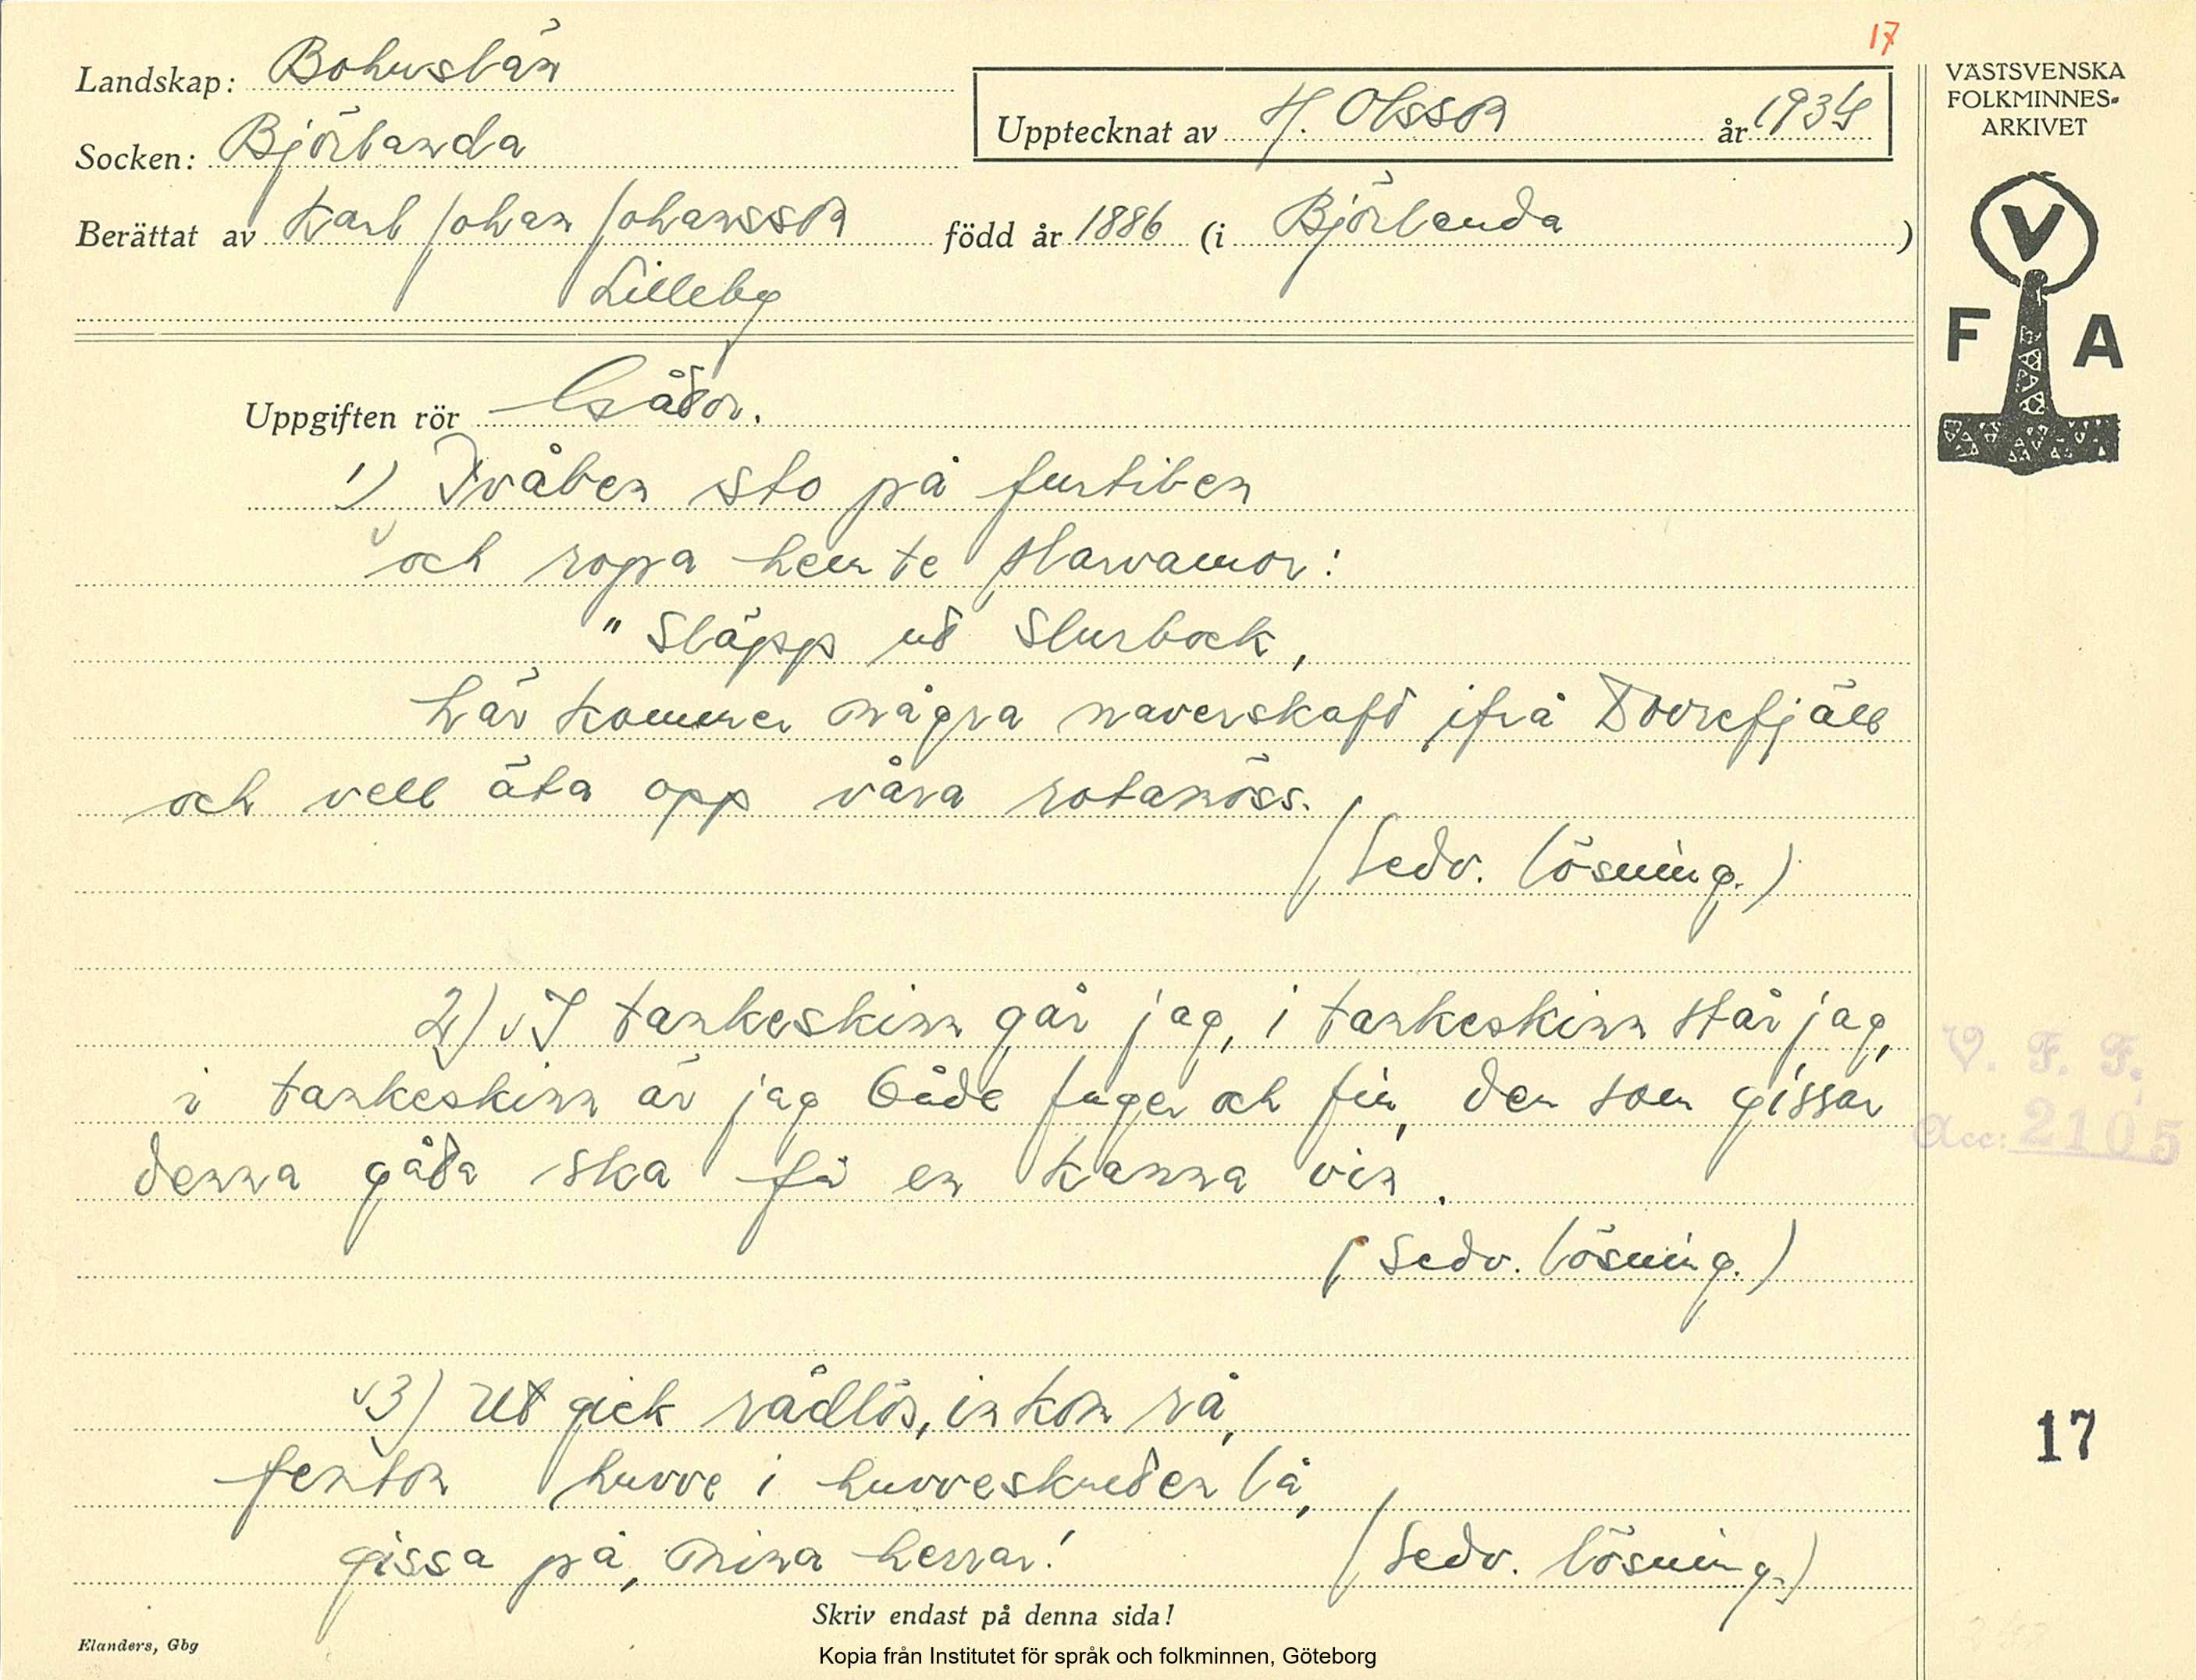 17
Landskap: Bohuslän
Socken: Björlanda
Upptecknat av H. Olsson år 1934
Berättat av Karl Johan Johansson född år 1886 (i Björlanda)
Lilleby
VÄSTSVENSKA
FOLKMINNES-
ARKIVET
V
F A
Uppgiften rör Gåtor.
1) Tvålen sto på furtilen
och ropa hem te Harvamor:
"Släpp ut Slurbock,
här kommer några naverskaft ifrå Dovrefjäll
och vell äta opp våra rotanöss.
(Sedv. lösning.)
2) I tankeskinn går jag, i tankeskinn står jag,
i tankeskinn är jag både fager och fin, den som gissar
denna gåta ska få en kanna vin.
(Sedv. lösning.)
3) Ut gick rådlös, in kom rå,
femton huvve i huvveskuden lå,
gissa på, mina herrar! (Sedv. lösning.)
V. F. F.
Acc: 2105
17
Skriv endast på denna sida!
Elanders, Gbg
Kopia från Institutet för språk och folkminnen, Göteborg